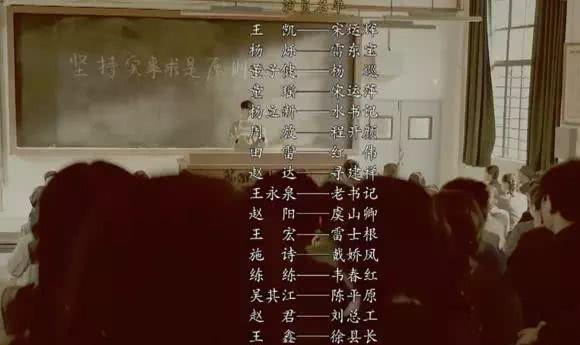 演员名单
王 凯——宋运辉
杨 烁——雷东宝
董子健——杨 巡
童 瑶——宋运萍
杨立新——水书记
周 放——程开颜
田 雷——红 伟
赵 达——寻建祥
王永泉——老书记
赵 阳——虞山卿
王 宏——雷士根
施 诗——戴娇凤
练 练——韦春红
吴其江——陈平原
赵 君——刘总工
王 鑫——徐县长
坚持实事求是原则